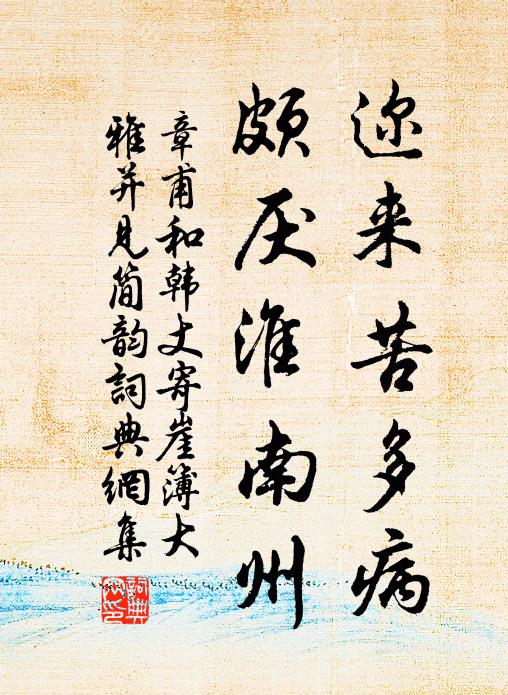 迩来苦多病
颇厌淮南州
章甫和韩丈寄崖簿大
雅并见简韵詞典網集